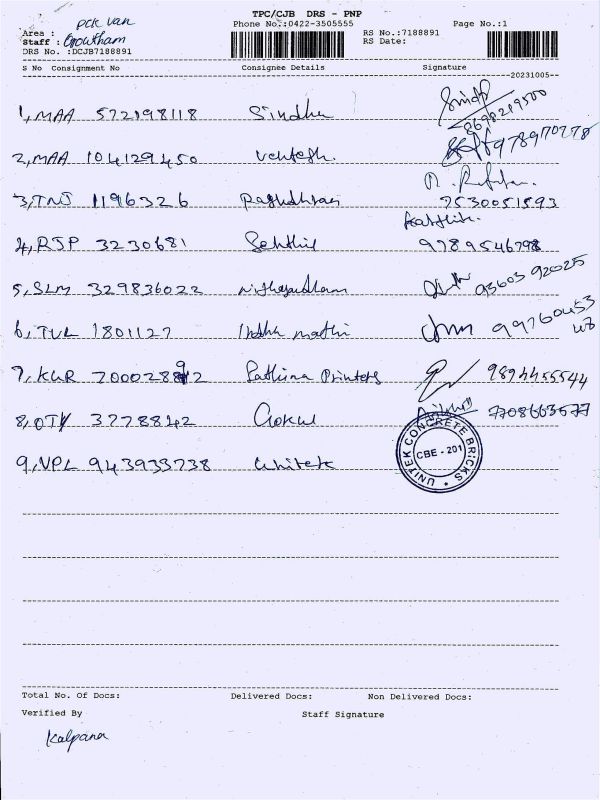 TPC/CJB DRS - PNP
Area : pck van Phone No.:0422-3505555 Page No.:1
Staff : Gowtham RS No.:7188891
DRS No. :DCJB7188891 RS Date:
S No Consignment No Consignee Details Signature
--20231005--
1, MAA 572198118 Sindhu
2, MAA 104129450 Venkatesh.
3, TNJ 1196326 7530051593
4, RJP 3230681 Senthil 9789546798
5, SLM 329836022 93603 92025
6, TVL 1801127 Indhu mathi
7, KUR 7000289 2 Sathina Printers 9894455544
8, OTY 3778842 Gokul 7708663677
9, VPL 943933738 Unitek
UNITEK CONCRETE BRICKS
CBE - 201
Total No. Of Docs: Delivered Docs: Non Delivered Docs:
Verified By Staff Signature
Kalpana